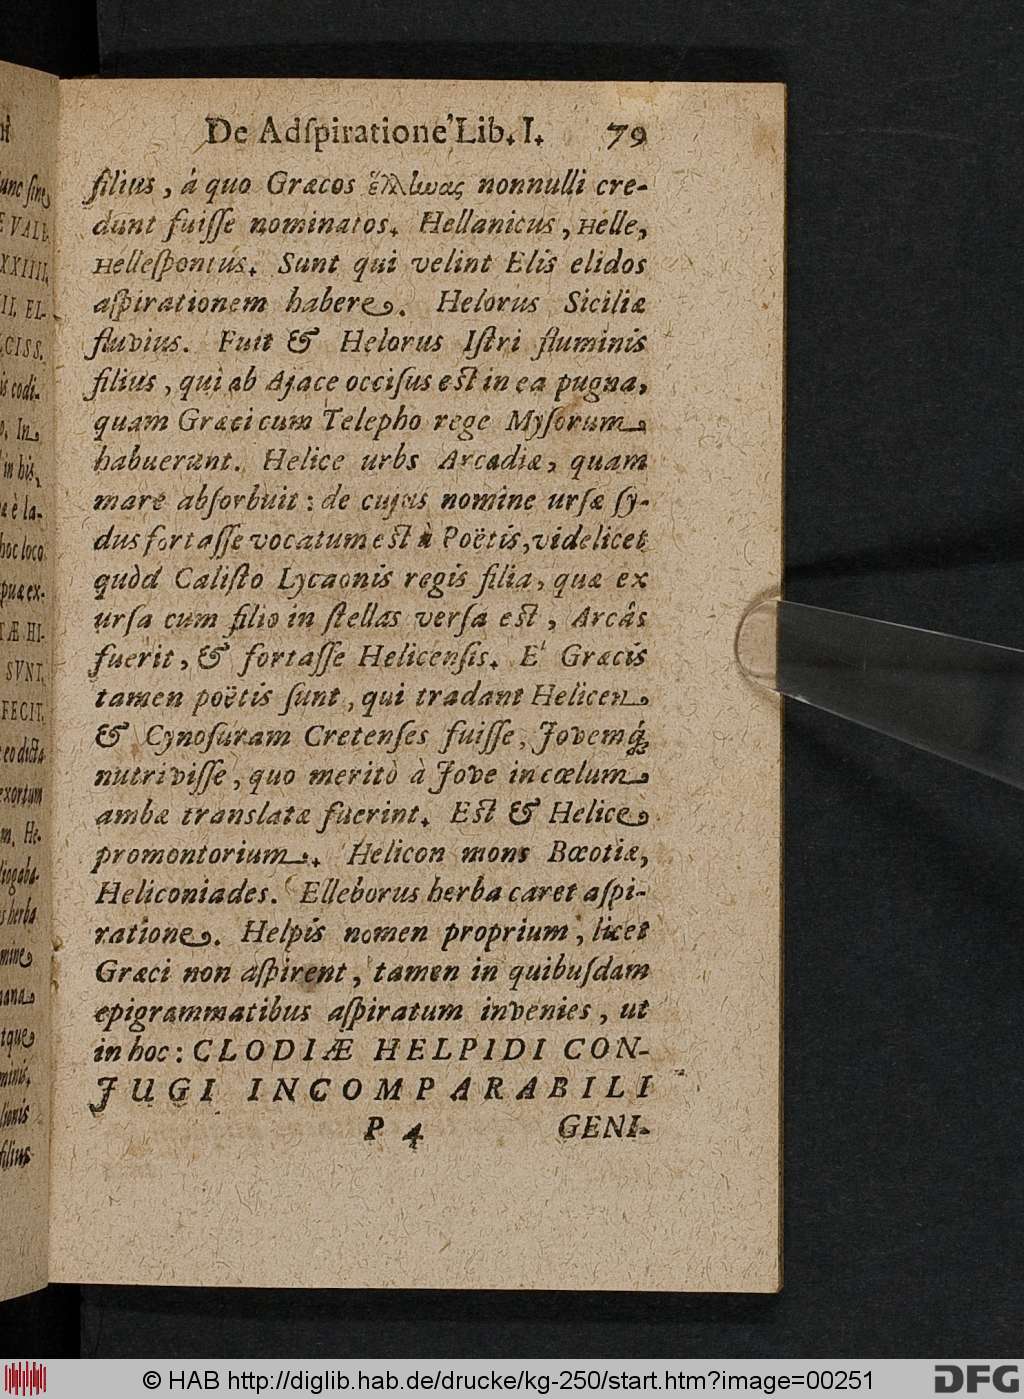 De Adſpiratione Lib. I. 79
filius, á quo Græcos ἕλλωας nonnulli cre-
dunt fuiſſe nominatos. Hellanicus, Helle,
Helleſpontus. Sunt qui velint Elis elidos
aſpirationem habere. Helorus Siciliæ
fluvius. Fuit & Helorus Iſtri fluminis
filius, qui ab Ajace occiſus eſt in ea pugna,
quam Græci cum Telepho rege Myſorum
habuerunt. Helice urbs Arcadiæ, quam
mare abſorbuit: de cujus nomine urſæ ſy-
dus fortaſſe vocatum eſt à Poëtis, videlicet
quòd Caliſto Lycaonis regis filia, quæ ex
urſa cum filio in ſtellas verſa eſt, Arcâs
fuerit, & fortaſſe Helicenſis. E Græcis
tamen poëtis ſunt, qui tradant Helicen
& Cynoſuram Cretenſes fuiſſe, Jovemq́;
nutriviſſe, quo meritò à Jove in cœlum
ambæ translatæ fuerint. Eſt & Helice
promontorium. Helicon mons Bœotiæ,
Heliconiades. Elleborus herba caret aſpi-
ratione. Helpis nomen proprium, licet
Græci non aſpirent, tamen in quibuſdam
epigrammatibus aſpiratum invenies, ut
in hoc: CLODIÆ HELPIDI CON-
JUGI INCOMPARABILI
P 4 GENI-
unc ſine
E VALE-
XXIIII,
II, EL-
CISS.
is codi-
o. In
in his,
a è la-
hoc loco
quæ ex-
TÆ HI-
SVNI,
FECIT,
eo dicta
exortum
m, He-
liogaba-
s herba
mine
tque
minis,
lionis
filius
© HAB http://diglib.hab.de/drucke/kg-250/start.htm?image=00251
DFG